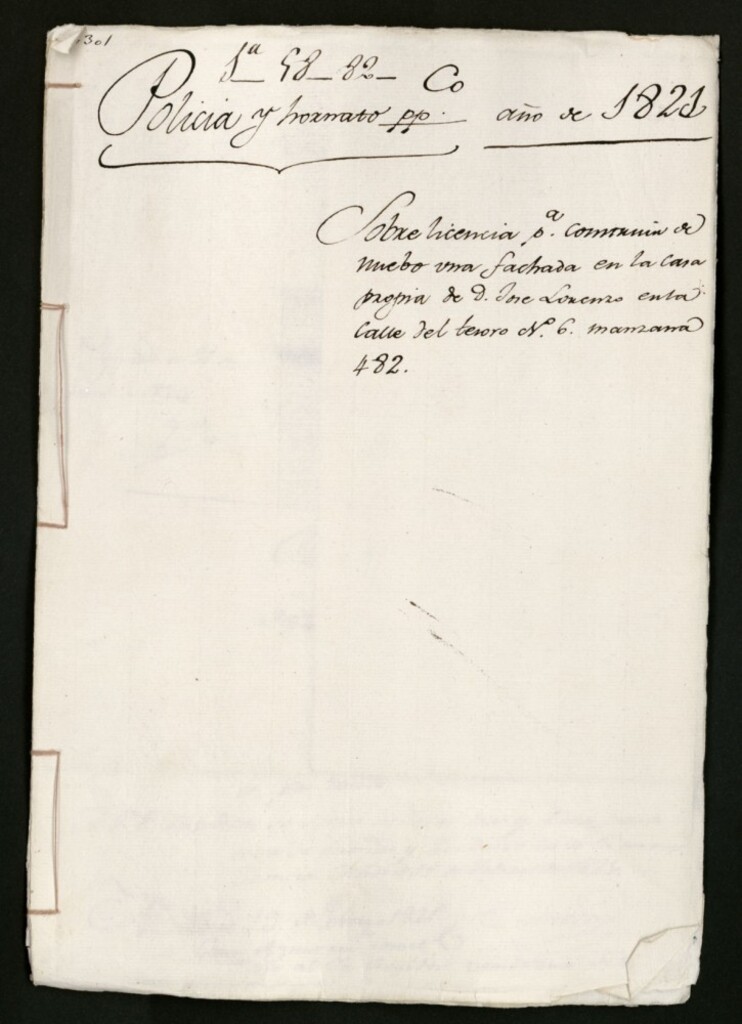 301
1ª 58-82- Co
Policia y hornato pp. año de 1821
Sobre licencia pª. construir de
nuebo una fachada en la casa
propia de D. Jose Lorenzo en la
Calle del tesoro Nº. 6. manzana
482.